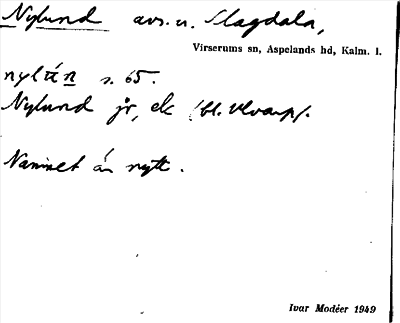 Nylund avs. u. Slagdala,
Virserums sn, Aspelands hd, Kalm. l.
nylún s. 65.
Nylund jr, ek
Namnet är nytt.
Ivar Modéer 1949